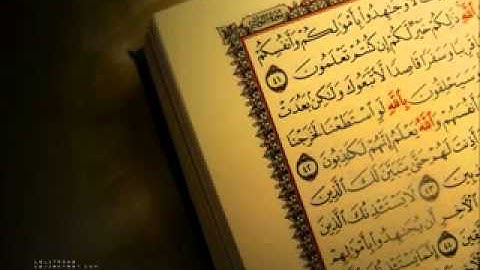 لَا وَجَٰهِدُوا۟ بِأَمْوَٰلِكُمْ وَأَنفُسِكُمْ
ٱللَّهِ ذَٰلِكُمْ خَيْرٌ لَّكُمْ إِن كُنتُمْ تَعْلَمُونَ ٤١
قَرِيبًا وَسَفَرًا قَاصِدًا لَّٱتَّبَعُوكَ وَلَٰكِنۢ بَعُدَتْ
وَسَيَحْلِفُونَ بِٱللَّهِ لَوِ ٱسْتَطَعْنَا لَخَرَجْنَا
أَنفُسَهُمْ وَٱللَّهُ يَعْلَمُ إِنَّهُمْ لَكَٰذِبُونَ ٤٢
أَذِنتَ لَهُمْ حَتَّىٰ يَتَبَيَّنَ لَكَ ٱلَّذِينَ
ذِبِينَ ٤٣ لَا يَسْتَـْٔذِنُكَ ٱلَّذِينَ
ٱلْءَاخِرِ أَن يُجَٰهِدُوا۟ بِأَمْوَٰلِهِمْ
قِينَ ٤٤ إِنَّمَا